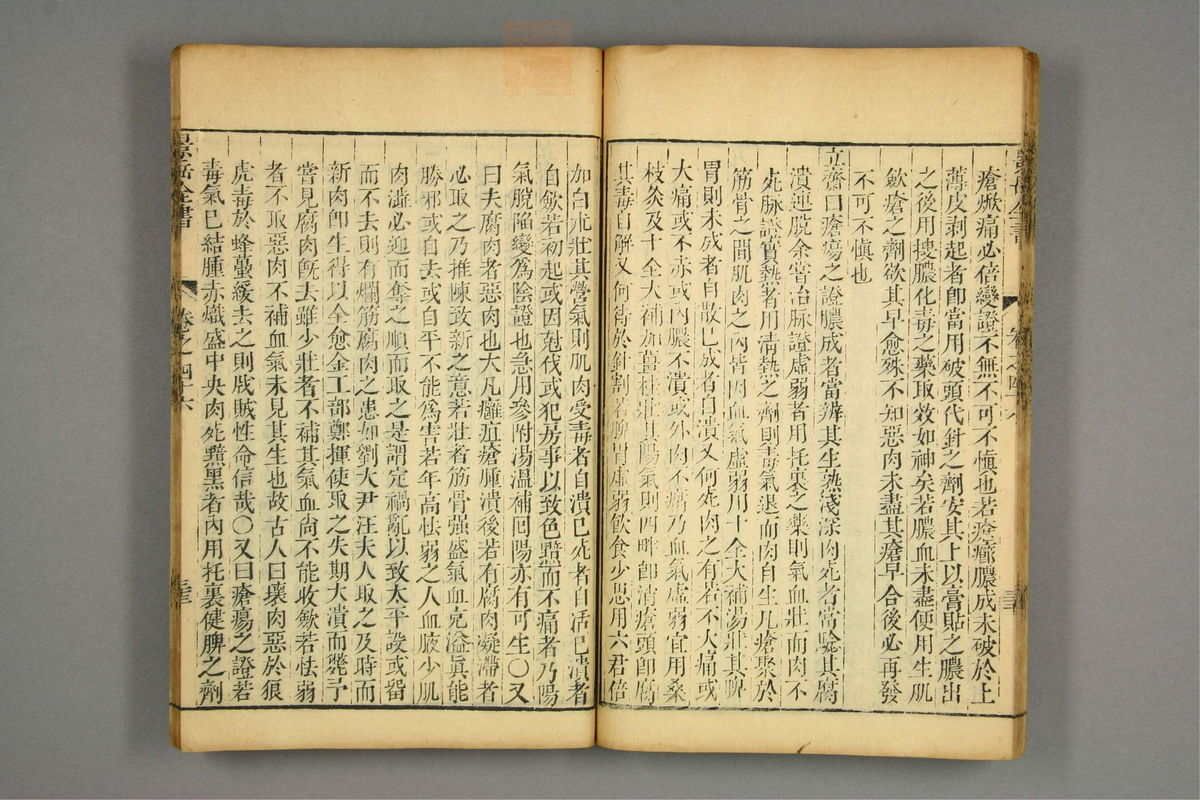 瘡㷔痛必倍變證不無不可不慎也若瘡癤膿成未破於上
薄皮剥起者卽當用破頭代針之劑安其上以膏貼之膿出
之後用搜膿化毒之藥取效如神矣若膿血未盡便用生肌
歛瘡之劑欲其早愈殊不知惡肉未盡其瘡早合後必再發
不可不慎也
立齋曰瘡瘍之證膿成者當辨其生熟淺深肉死者當驗其腐
潰連脱余嘗治脉證虛弱者用托裏之藥則氣血壯而肉不
死脉證實熱者用清熱之劑則毒氣退而肉自生凡瘡聚於
筋骨之間肌肉之内皆因血氣虛弱用十全大補湯壯其脾
胃則未成者自散已成者自潰又何死肉之有若不大痛或
大痛或不赤或内膿不潰或外肉不腐乃血氣虛弱宜用桑
枝灸及十全大補加薑桂壯其陽氣則四畔卽消瘡頭卽腐
其毒自解又何待於針割若脾胃虛弱飲食少思用六君倍
加白朮壯其營氣則肌肉受毒者自潰已死者自活已潰者
自歛若初起或因尅伐或犯房事以致色黯而不痛者乃陽
氣脫陷變爲陰證也急用參附湯溫補囘陽亦有可生〇又
曰夫腐肉者惡肉也大凡癰疽瘡腫潰後若有腐肉凝滯者
必取之乃推陳致新之意若壯者筋骨强盛氣血充溢眞能
勝邪或自去或自平不能爲害若年高怯弱之人血液少肌
肉澁必迎而奪之順而取之是謂定禍亂以致太平設或留
而不去則有爛筋腐肉之患如劉大尹汪夫人取之及時而
新肉卽生得以全愈金工部鄭揮使取之失期大潰而斃予
嘗見腐肉旣去雖少壯者不補其氣血尙不能收歛若怯弱
者不取惡肉不補血氣未見其生也故古人曰壞肉惡於狼
虎毒於蜂蠆緩去之則戕賊性命信哉〇又曰瘡瘍之證若
毒氣已結腫赤熾盛中央肉死黯黑者内用托裏健脾之劑
景岳全書
卷之四十六
三